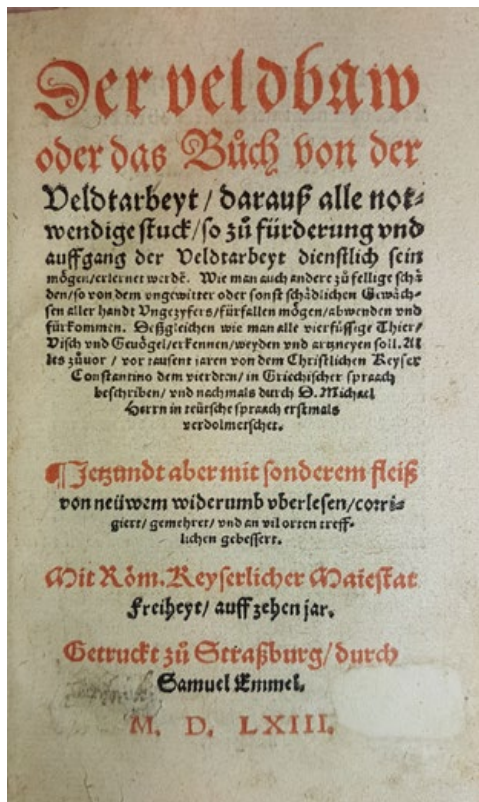 Der veldbaw
oder das Bůch von der
Veldtarbeyt / darauß alle not⸗
wendige stuck / so zů fürderung vnd
auffgang der Veldtarbeyt dienstlich sein
mögen / erlernet werdē. Wie man auch andere zů fellige schä
den / so von dem vngewitter oder sonst schädlichen Gewäch⸗
sen aller handt Vngezyfers / fürfallen mögen / abwenden vnd
fürkommen. Deßgleichen wie man alle vierfüssige Thier /
Visch vnd Geuögel / erkennen / weyden vnd artzneyen soll. Al
les zůuor / vor tausent jaren von dem Christlichen Keyser
Constantino dem vierdten / in Griechischer spraach
beschriben / vnd nachmals durch D. Michael
Herrn in teütsche spraach erstmals
verdolmetschet.
¶ Jetzundt aber mit sonderem fleiß
von neüwem widerumb vberlesen / corri⸗
giert / gemehret / vnd an vil orten treff⸗
lichen gebessert.
Mit Röm. Keyserlicher Maiestat
Freiheyt / auff zehen jar.
Getruckt zů Straßburg / durch
Samuel Emmel.
M. D. LXIII.